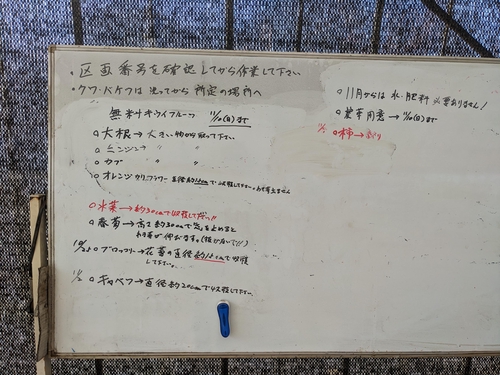 ・区画番号を確認してから作業して下さい
・クワ・バケツは洗ってから所定の場所へ
無料キウイフルーツ 11/10(日)まで
○大根→大きい物から取って下さい
○ニンジン〃 〃
○カブ 〃 〃
○オレンジカリフラワー 直径約 cmで収穫して下さい。
○水菜→約30cmで収穫して下さい!!
○春菊→高さ約30cmで を止めると
わき芽が伸びます。
ブロッコリー→花蕾の直径約 cmで収穫
して下さい。
11/2 キャベツ→直径約20cmで収穫して下さい。
○11月からは水・肥料必要ありません!
→11/10(日)まで
11/ ○柿→